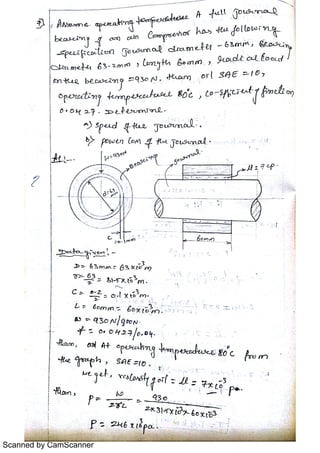 Assume operating temperature A full Journal
bearing of an air Compressor has the following
specification Journal diameter - 63mm, Bearing
diameter 63.2mm, length 60mm, radial load
on the bearing = 930N. than oil SAE = 10,
operating temperature 80°c, co-efficient friction
0.0427. Determine.
a) speed of the Journal.
b) power loss of the Journal.
Bearing
Journal
60mm
Data given:-
D = 63mm = 63x10⁻³m
r = 63/2 = 31.5x10⁻³m.
C = 0.2/2 = 0.1x10⁻³m.
L = 60mm = 60x10⁻³m.
= 930N/
f = 0.0427/0.04.
than, oil At operating temperature 80°C from
the graph, SAE = 10.
we get, viscosity of oil = μ = 7x10⁻³ pa.
than, P = W/2rL = 930/2x31.5x10⁻³x60x10⁻³
P = 246x10³pa.
Scanned by CamScanner